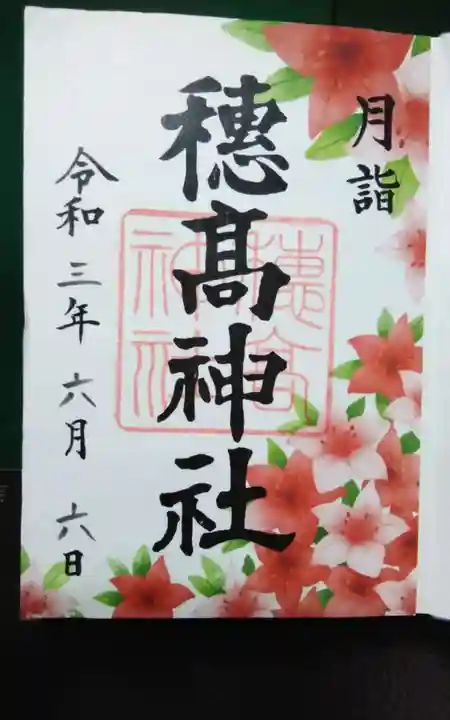 月詣
穂髙神社
穂高神社
令和三年六月六日